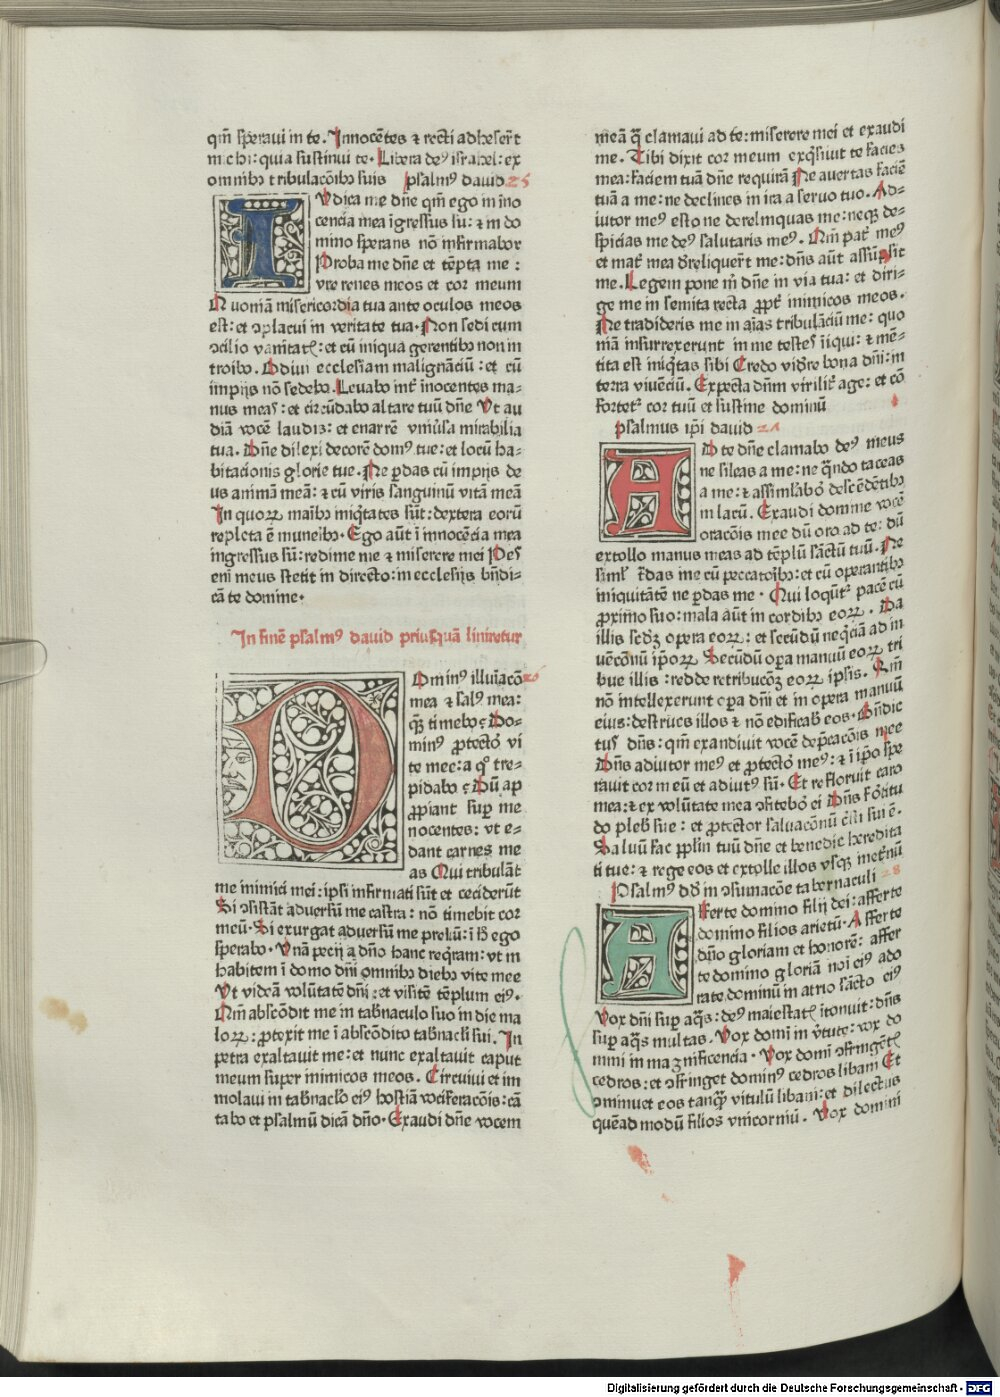 qm̄ speravi in te. Innocētes ⁊ recti adheser̄t
michi: quia sustinui te. Libera deꝰ israhel: ex
omnibꝫ tribulacōibꝫ suis psalmꝰ david 25
Iudica me dn̄e qm̄ ego in ino
cencia mea īgressus su: ⁊ in do
mino sperans nō infirmabor
Proba me dn̄e et tēpta me:
vre renes meos et cor meum
Quoniā misericordia tua ante oculos meos
est: et ↄplacui in veritate tua. Non sedi cum
ↄcilio vanitatꝭ: et cū iniqua gerentibꝫ non in
troibo. Odivi ecclesiam malignāciū: et cū
impijs nō sedebo. Levabo int̄ inocentes ma-
nus meas: et circūdabo altare tuū dn̄e Ut au
diā vocē laudis: et enarrē vniūsa mirabilia
tua. Dn̄e dilexi decorē domꝰ tue: et locū ha-
bitacionis glorie tue. Ne perdas cū impijs de
us animā meā: ⁊ cū viris sanguinū vitā meā
In quoꝝ maībꝫ iniq̄tates sūt: dextera eorū
repleta ē muneibꝫ. Ego aūt ī innocēcia mea
ingressus sū: redime me ⁊ miserere mei Pes
eni meus stetit in directo: in ecclesijs bn̄di-
cā te domine.
In finē psalmꝰ david priusquā liniretur
Ominꝰ illuīacō 26
mea ⁊ salꝰ mea:
quē timebo? Do-
minꝰ ꝓtectoꝛ vi
te mee: a quo tre-
pidabo? Dū ap
ꝓpiant suꝑ me
nocentes: vt e-
dant carnes me
as Qui tribulāt
me inimici mei: ipsi infirmati sūt et ceciderūt
Si ↄsistāt adversū me castra: nō timebit cor
meū. Si exurgat adversū me preliū: ī hͦ ego
sperabo. Unā pecij a dn̄o hanc req̄ram: vt in
habitem ī domo dn̄i omnibꝫ diebꝫ vite mee
Ut videā volūtatē dn̄i: et visitē tēplum eiꝰ.
Qm̄ abscōdit me in tab̄naculo suo in die ma
loꝝ: ꝓtexit me ī abscōdito tab̄nacli sui. In
petra exaltavit me: et nunc exaltavit caput
meum super inimicos meos. Circuivi et im
molavi in tab̄naclo eiꝰ hostiā vociferacōis: cā
tabo et psalmū dicā dn̄o. Exaudi dn̄e vocem
meā q̄ clamavi ad te: miserere mei et exaudi
me. Tibi dixit cor meum exq̄sivit te facies
mea: faciem tuā dn̄e requirā Ne avertas faciē
tuā a me: ne declines in ira a servo tuo. Ad-
iutor meꝰ esto ne derelinquas me: neqꝫ de-
spicias me deꝰ salutaris meꝰ. Qm̄ pat̄ meꝰ
et mat̄ mea d̄reliquer̄t me: dn̄s aūt assūpsit
me. Legem pone m̄ dn̄e in via tua: et diri-
ge me in semita recta ꝓpt̄ inimicos meos.
Ne tradideris me in aīas tribulāciū me: quo
niā insurrexerunt in me testes īiqui: ⁊ mē-
tita est iniq̄tas sibi Credo vid̄re bona dn̄i: in
terra vivēciū. Expecta dn̄m virilit̄ age: et cō
fortetꝛ cor tuū et sustine dominū
psalmus ip̄i david 27
AD te dn̄e clamabo deꝰ meus
ne sileas a me: ne q̄ndo taceas
a me: ⁊ assimlaboꝛ descēdētibꝫ
in lacū. Exaudi domine vocē
oracōis mee dū oro ad te: dū
extollo manus meas ad tēplū sāctū tuū. Ne
siml̄ t̄das me cū peccatoibꝫ: et cū operantibꝫ
iniquitatē ne perdas me. Qui loqūtꝛ pacē cū
ꝓximo suo: mala aūt in cordibꝫ eoꝝ. Da
illis scd̄ꝫ opera eoꝝ: et secūdū neq̄ciā ad in
vēcōnū ip̄oꝝ Secūdū oꝑa manuū eoꝝ tri
bue illis: redde retribucōꝫ eoꝝ ipsis. Qm̄
nō intellexerunt oꝑa dn̄i et in opera manuū
eius: destrues illos ⁊ nō edificab̄ eos. Bn̄dic
tus dn̄s: qm̄ exaudiuit vocē dep̄cacōis mee
Dn̄s adiutor meꝰ et ꝓtectoꝛ meꝰ: ⁊ ī ip̄o spe
ravit cor meū et adiutꝰ sū. Et refloruit caro
mea: ⁊ ex volūtate mea ↄfitebor ei Dn̄s fortitu
do plebis sue: et ꝓtector salvacōnū cr̄isti sui ē.
Salvū fac pplm̄ tuū dn̄e et benedic heredita
ti tue: ⁊ rege eos et extolle illos vsqꝫ inet̄nū
Psalmꝰ dd̄ in ↄsumacōe tabernaculi 28
Afferte domino filij dei: afferte
domino filios arietū. Afferte
dn̄o gloriam et honorē: affer
te domino gloriā noī eiꝰ ado
rate dominū in atrio sācto eiꝰ
Vox dn̄i suꝑ aq̄s: deꝰ maiestatꝭ ītonuit: dn̄s
suꝑ aq̄s multas. Vox domī in v̄tute: vox do
mini in magnificencia. Vox domī ↄfringētꝭ
cedros: et ↄfringet dominꝰ cedros libani Et
ↄminuet eos tanq̄ vitulū libani: et dilectus
quēadmodū filios vnicorniū. Vox domini
Digitalisierung gefördert durch die Deutsche Forschungsgemeinschaft - DFG